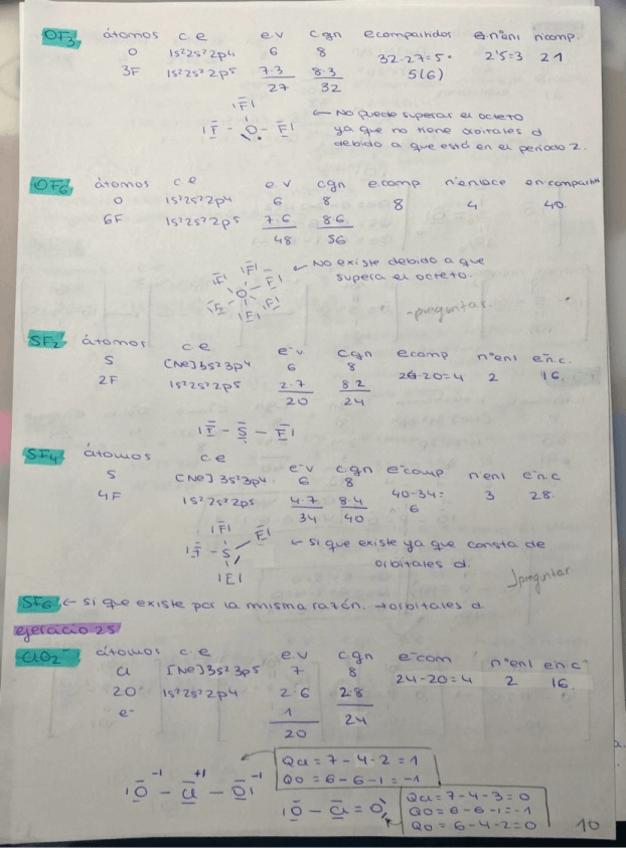 OF3 átomos c.e e.v cgn ecompartidos e.nºenl ncomp.
O 1s²2s²2p4 6 8 32-27=5· 2'5=3 21
3F 1s²2s²2p5 7·3 8·3 5(6)
27 32
|F̄|
|F̄ - O - F̄|
← No puede superar el octeto
ya que no tiene orbitales d
debido a que está en el periodo 2.
OF6 átomos c.e e.v cgn e.comp nºenlace en.compart
O 1s²2s²2p4 6 8 8 4 40
6F 1s²2s²2p5 7·6 8·6
48 56
|F̄| |F̄| F̄|
O
|F̄ |F̄| |F̄|
← No existe debido a que
supera el octeto.
-preguntar.
SF2 átomos c.e e-v cgn ecomp nºenl en.c.
S [Ne]3s²3p4 6 8 24-20=4 2 16
2F 1s²2s²2p5 2·7 8·2
20 24
|F̄ - S̄ - F̄|
SF4 átomos c.e e-v cgn e-comp nºenl en.c
S [Ne]3s²3p4 6 8 40-34= 3 28
4F 1s²2s²2p5 4·7 8·4 6
34 40
|F̄|
|F̄ - S - F̄|
|F|
← Si que existe ya que consta de
orbitales d.
preguntar
SF6 ← si que existe por la misma razón. → orbitales d
ejercicio 25
ClO2⁻ átomos c.e e.v cgn e-com nºenl en.c⁻
Cl [Ne]3s²3p5 7 8 24-20=4 2 16
2O 1s²2s²2p4 2·6 2·8
e⁻ 1 24
20
|Ō⁻¹ - C̄l⁺¹ - Ō|⁻¹
QCl = 7-4-2=1
QO = 6-6-1=-1
|Ō - C̄l = O
QCl = 7-4-3=0
QO = 6-6-1=-1
QO = 6-4-2=0
10